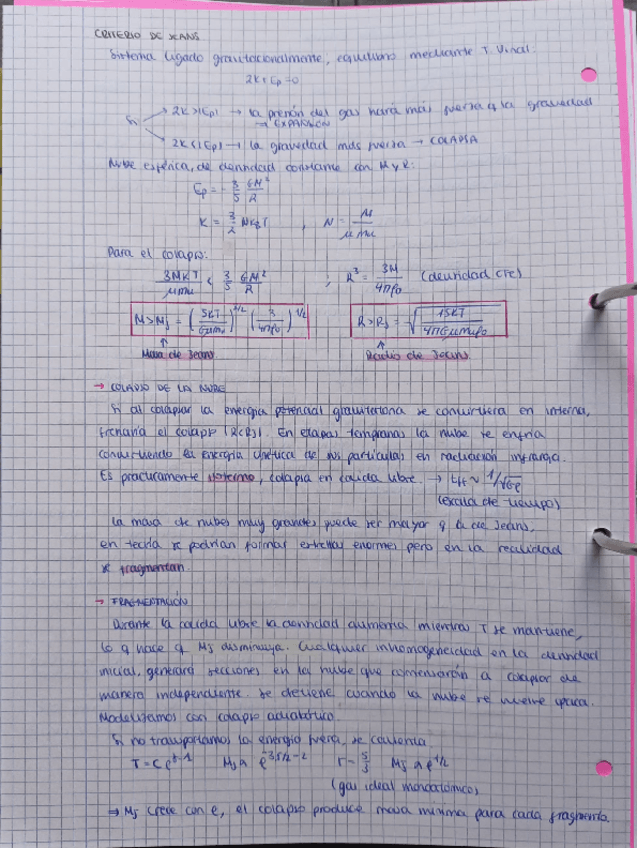 CRITERIO DE JEANS
Sistema ligado gravitacionalmente, equilibrio mediante T. Virial:
2K+Ep=0
Si → 2K>|Ep| → la presión del gas hará más fuerza q la gravedad
→ EXPANSIÓN
→ 2K<|Ep| → la gravedad más fuerza → COLAPSA
Nube esférica, de densidad constante con M y R:
Ep = - 3/5 GM²/R
K = 3/2 NKBT , N = M/μmu
Para el colapso:
3MKT/μmu < 3/5 GM²/R ; R³ = 3M/4πρ0 (densidad cte)
M>MJ = (5KT/Gμmu)^3/2 (3/4πρ0)^1/2 R>RJ = √15KT/4πGμmuρ0
↑ Masa de Jeans ↑ Radio de Jeans
→ COLAPSO DE LA NUBE
Si al colapsar la energía potencial gravitatoria se convirtiera en interna,
frenaría el colapso (R<RJ). En etapas tempranas la nube se enfría
convirtiendo la energía cinética de sus partículas en radiación infrarroja.
Es practicamente isotermo, colapsa en caída libre. → tff ~ 1/√Gρ
(escala de tiempo)
La masa de nubes muy grandes puede ser mayor q la de Jeans,
en teoría se podrían formar estrellas enormes pero en la realidad
se fragmentan.
→ FRAGMENTACIÓN
Durante la caída libre la densidad aumenta mientras T se mantiene,
lo q hace q MJ disminuya. Cualquier inhomogeneidad en la densidad
inicial, generará secciones en la nube que comenzarán a colapsar de
manera independiente. Se detiene cuando la nube se vuelve opaca.
Modelizamos con colapso adiabático.
Si no transportamos la energía fuera, se calienta
T = Cρ^γ-1 MJ ∝ ρ^3γ/2-2 γ = 5/3 MJ ∝ ρ^1/2
(gas ideal monoatómico)
⇒ MJ crece con ρ, el colapso produce masa mínima para cada fragmento.